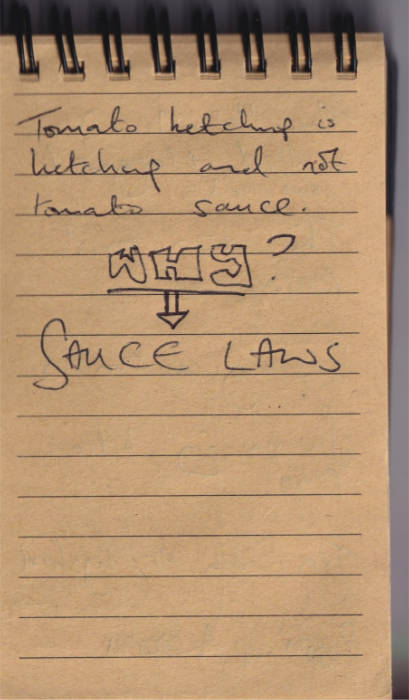 Tomato ketchup is
ketchup and not
tomato sauce.
WHY?
SAUCE LAWS